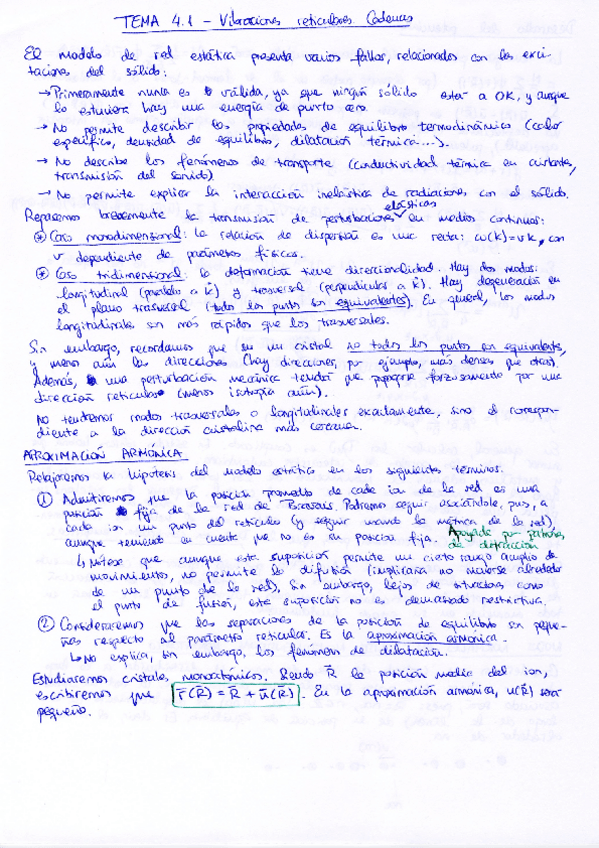 TEMA 4.1 - Vibraciones reticulares Cadenas
El modelo de red estática presenta varios fallos, relacionados con las exci-
taciones del sólido:
→ Primeramente nunca es válida, ya que ningún sólido está a 0K, y aunque
lo estuviera hay una energía de punto cero.
→ No permite describir las propiedades de equilibrio termodinámico (calor
específico, densidad de equilibrio, dilatación térmica....).
→ No describe los fenómenos de transporte (conductividad térmica en aislantes,
transmisión del sonido)
→ No permite explicar la interacción inelástica de radiaciones con el sólido.
Repasemos brevemente la transmisión de perturbaciones elásticas en medios continuos:
* Caso monodimensional: la relación de dispersión es una recta: ω(k)=vk, con
v dependiente de parámetros físicos.
* Caso tridimensional: la deformación tiene direccionalidad. Hay dos modos:
longitudinal (paralelo a k) y trasversal (perpendicular a k). Hay degeneración en
el plano trasversal (todos los puntos son equivalentes). En general, los modos
longitudinales son más rápidos que los trasversales.
Sin embargo, recordamos que en un cristal no todos los puntos son equivalentes,
y menos aún las direcciones (hay direcciones, por ejemplo, más densas que otras).
Además, una perturbación mecánica tendrá que propagarse forzosamente por una
dirección reticular (menos isotropía aún).
No tendremos modos trasversales o longitudinales exactamente, sino el correspon-
diente a la dirección cristalina más cercana.
APROXIMACIÓN ARMÓNICA
Relajaremos la hipótesis del modelo estático en los siguientes términos:
① Admitiremos que la posición promedio de cada ion de la red es una
posición fija de la red de Bravais. Podremos seguir asociándole, pues, a
cada ion un punto del retículo (y seguir usando la métrica de la red),
aunque teniendo en cuenta que no es su posición fija. Apoyado por patrones
de difracción
↳ Nótese que aunque esta suposición permite un cierto rango amplio de
movimientos, no permite la difusión (implicaría no moverse alrededor
de un punto de la red). Sin embargo, lejos de situaciones como
el punto de fusión, esta suposición no es demasiado restrictiva.
② Consideraremos que las separaciones de la posición de equilibrio son peque-
ñas respecto al parámetro reticular. Es la aproximación armónica.
↳ No explica, sin embargo, los fenómenos de dilatación.
Estudiaremos cristales monoatómicos. Siendo R la posición media del ion,
escribiremos que r̄(R̄) = R̄ + ū(R̄). En la aproximación armónica, u(R̄) será
pequeño.